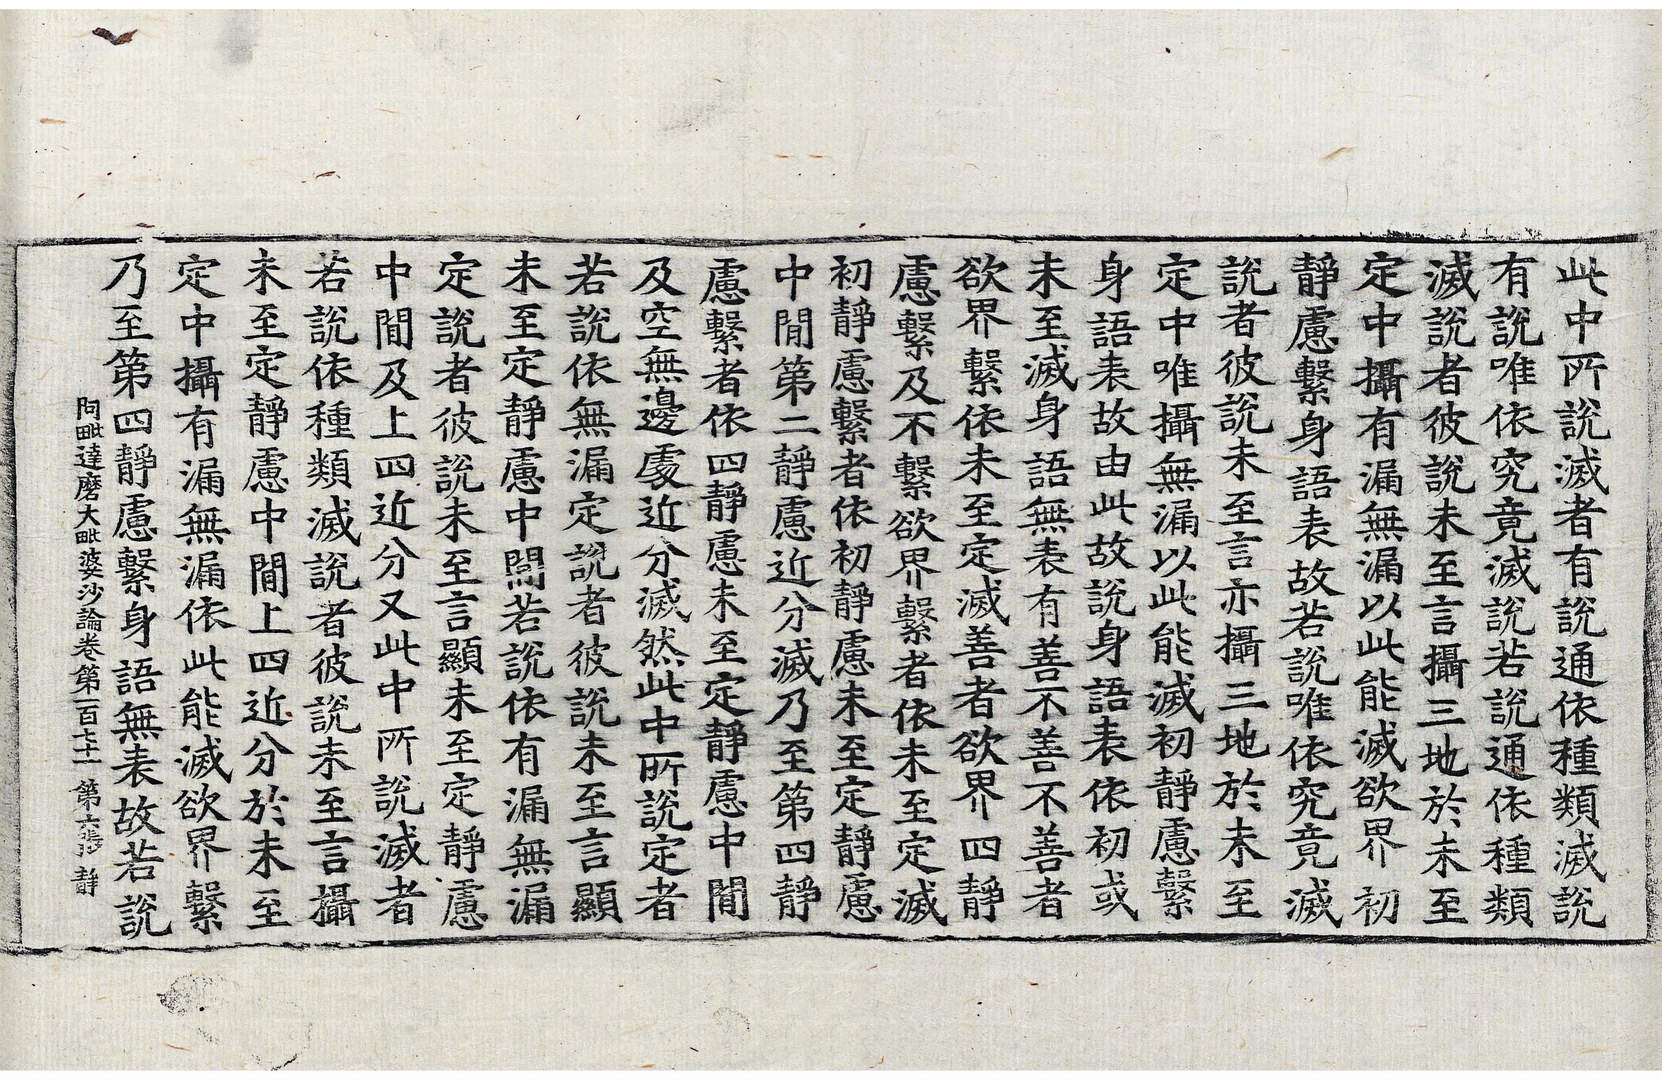 此中所說滅者有說通依種類滅說
有說唯依究竟滅說若說通依種類
滅說者彼說未至言攝三地於未至
定中攝有漏無漏以此能滅欲界初
靜慮繫身語表故若說唯依究竟滅
說者彼說未至言亦攝三地於未至
定中唯攝無漏以此能滅初靜慮繫
身語表故由此故說身語表依初或
未至滅身語無表有善不善不善者
欲界繫依未至定滅善者欲界四靜
慮繫及不繫欲界繫者依未至定滅
初靜慮繫者依初靜慮未至定靜慮
中間第二靜慮近分滅乃至第四靜
慮繫者依四靜慮未至定靜慮中間
及空無邊處近分滅然此中所說定者
若說依無漏定說者彼說未至言顯
未至定靜慮中間若說依有漏無漏
定說者彼說未至言顯未至定靜慮
中間及上四近分又此中所說滅者
若說依種類滅說者彼說未至言攝
未至定靜慮中間上四近分於未至
定中攝有漏無漏依此能滅欲界繫
乃至第四靜慮繫身語無表故若說
阿毗達磨大毗婆沙論卷第一百七十一 第六張 靜